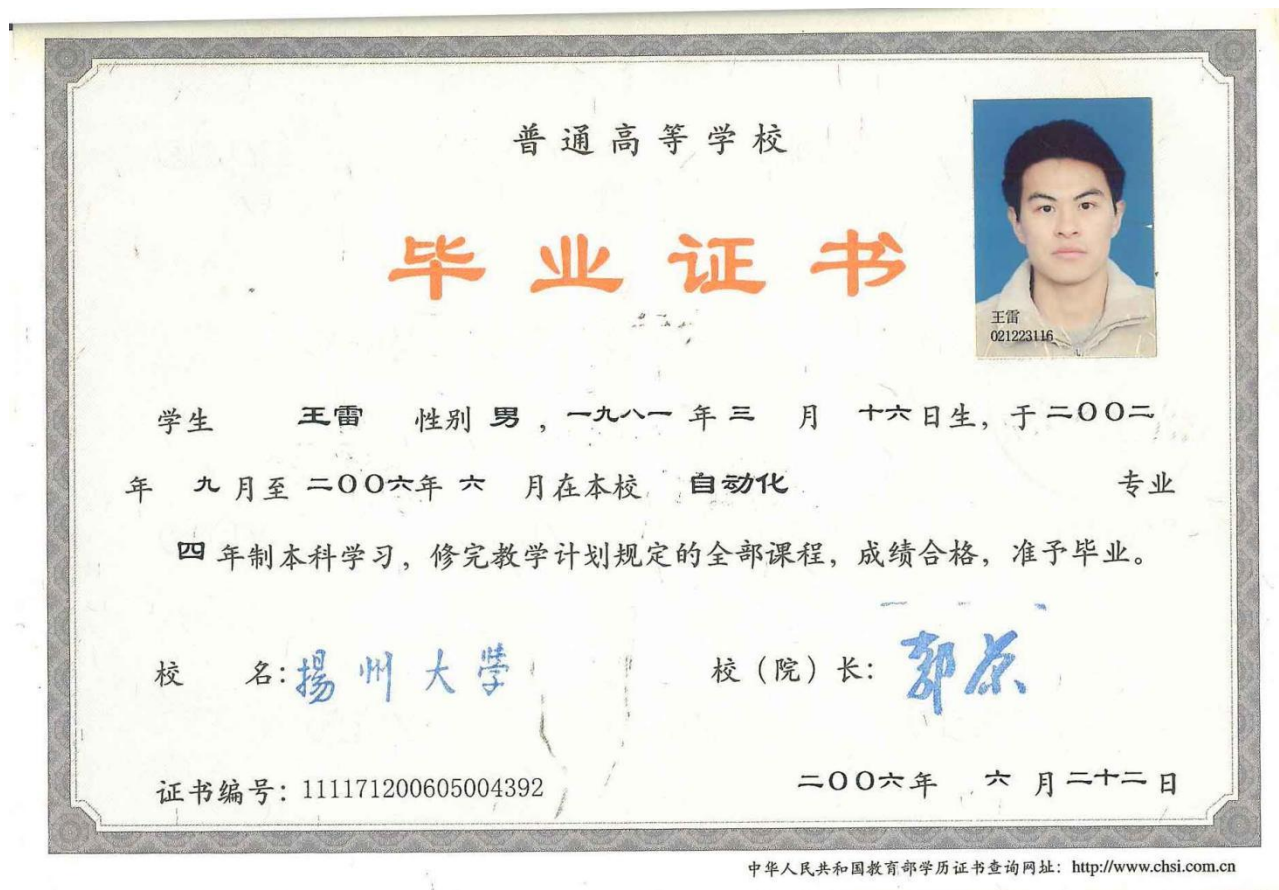 普通高等学校
毕业证书
王雷
021223116
学生 王雷 性别 男，一九八一 年 三 月 十六 日生，于 二〇〇二
年 九 月至 二〇〇六 年 六 月在本校 自动化 专业
四 年制本科学习，修完教学计划规定的全部课程，成绩合格，准予毕业。
校 名：揚州大學 校（院）长：郭荣
证书编号：111171200605004392 二〇〇六 年 六 月 二十二 日
中华人民共和国教育部学历证书查询网址：http://www.chsi.com.cn